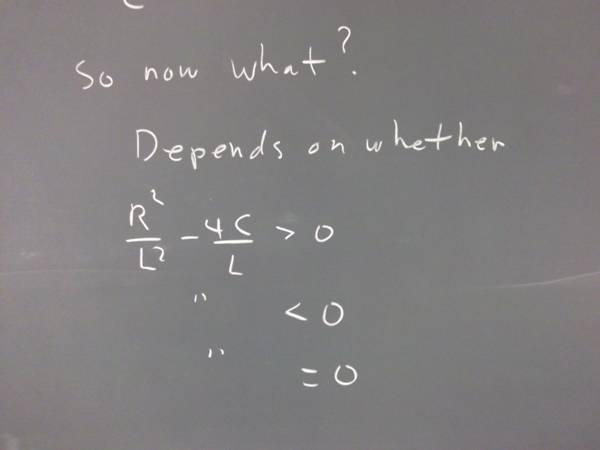 So now what?
Depends on whether
R²/L² - 4C/L > 0
" < 0
" = 0